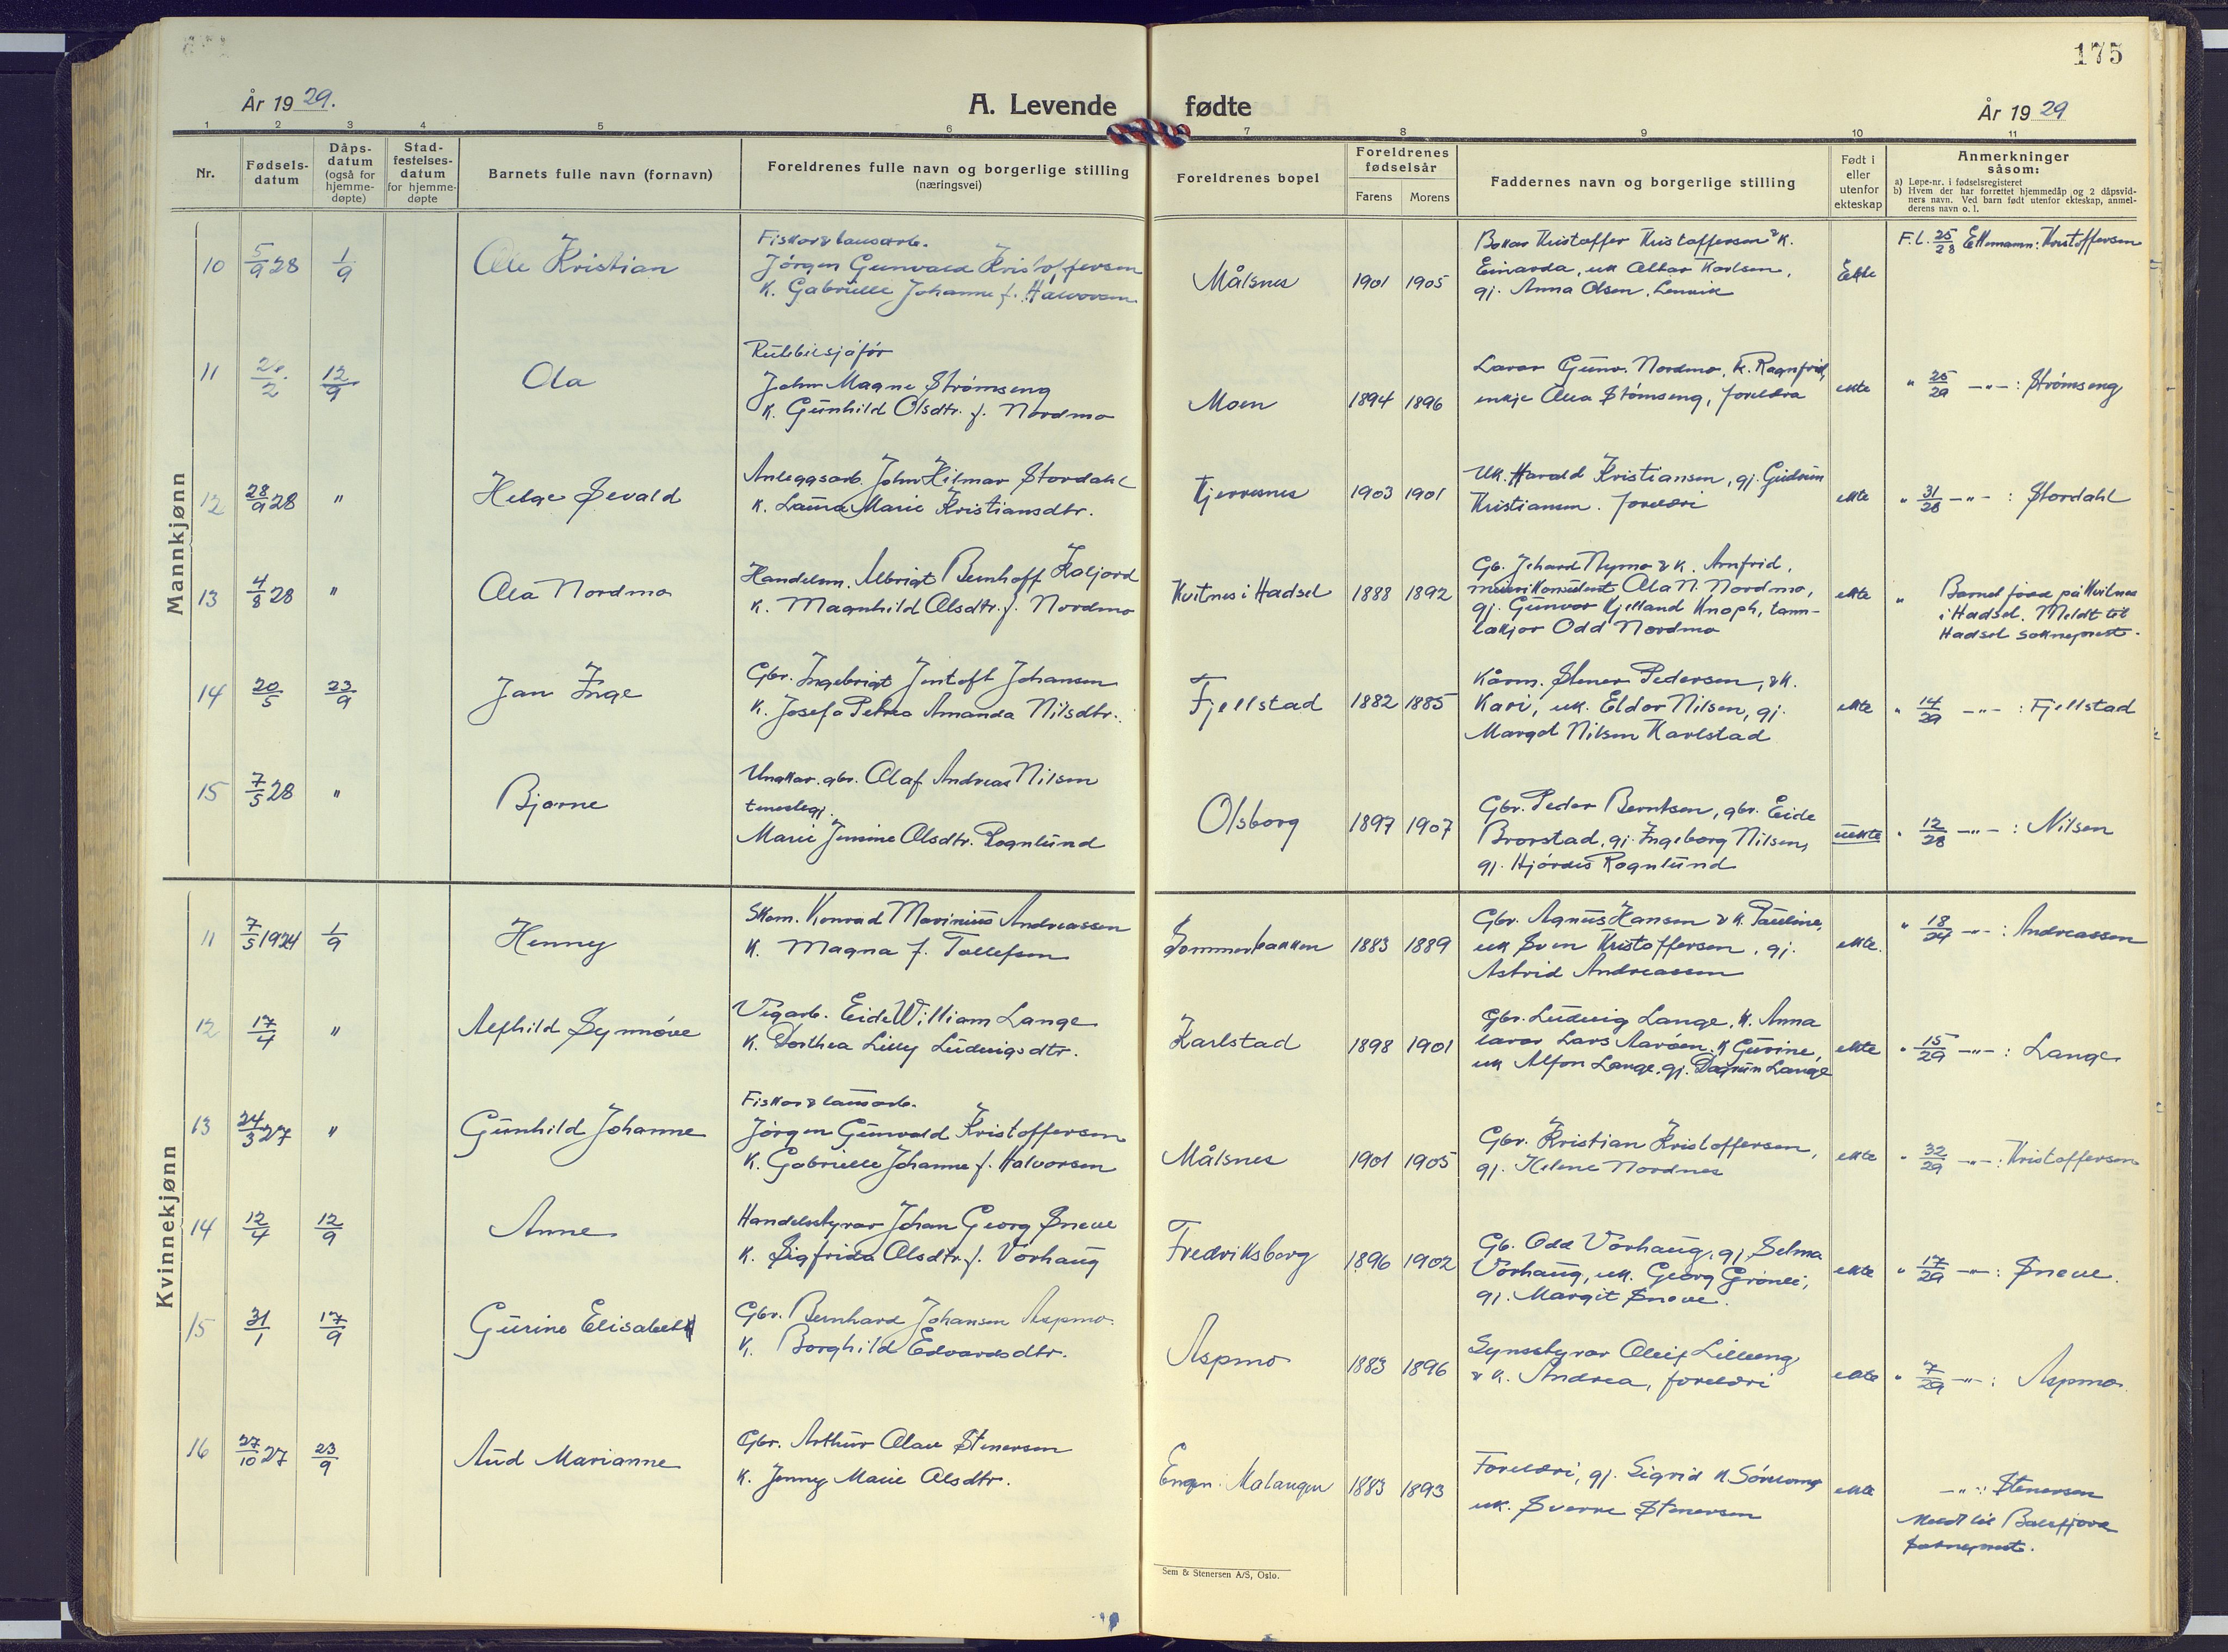 175
År 1929.
A. Levende fødte
År 1929
1 2 3 4 5 6 7 8 9 10 11
Nr.
Fødsels-
datum
Dåps-
datum
(også for
hjemme-
døpte)
Stad-
festelses-
datum
for hjemme-
døpte
Barnets fulle navn (fornavn)
Foreldrenes fulle navn og borgerlige stilling
(næringsvei)
Foreldrenes bopel
Foreldrenes
fødselsår
Farens Morens
Faddernes navn og borgerlige stilling
Født i
eller
utenfor
ekteskap
Anmerkninger
såsom:
a) Løpe-nr. i fødselsregisteret
b) Hvem der har forrettet hjemmedåp og 2 dåpsvid-
ners navn. Ved barn født utenfor ekteskap, anmel-
derens navn o. l.
Mannkjønn
10 5/9 28 1/9 Ole Kristian
Fiskar & lausarb.
Jørgen Gunvald Kristoffersen
K. Gabrielle Johanne f. Halvorsen
Målsnes 1901 1905
Kristoffer Kristoffersen & K.
Einarda, uk Karlsen,
gj. Anna Olsen, Lenvik
Ekte
F.l. 25/28 Etternamn: Kristoffersen
11 2/2 12/9 Ola
Rutebilsjåfør
John Magne Strømseng
K. Gunhild Olsdtr. f. Nordmo
Moen 1894 1896
Lærar Gunv. Nordmo, K. Ragnfrid,
enkje Strømseng, foreldra
ekte
" 25/29 -"- : Strømseng
12 28/9 28 " Helge Sevald
Anleggsarb. John Hilmar Stordahl
K. Laura Marie Kristiansdtr.
Kjerresnes 1903 1901
Uk. Harald Kristiansen, gj. Gudrun
Kristiansen. foreldri
ekte
" 31/28 -"- : Stordahl
13 4/8 28 " Ola Nordmo
Handelsm. Albrigt Bernhoff Kaljord
K. Magnhild Olsdtr. f. Nordmo
Kvitnes i Hadsel 1888 1892
Gb. Nymo & K. Arnfrid,
meierikonsulent Ola N. Nordmo,
gj. Gunvor Kjelland Knoph, tann-
lækjar Odd Nordmo
ekte
" Barnet født på Kvitnes
i Hadsel. Meldt til
Hadsel sokneprest.
14 20/5 23/9 Jan Inge
Gbr. Ingebrigt Jentoft Johansen
K. Josefa Petrea Amanda Nilsdtr.
Fjellstad 1882 1885
Stener Pedersen, & K.
Kari, uk. Eldor Nilsen, gj.
Margot Nilsen Karlstad
ekte
" 14/29 -"- : Fjellstad
15 7/5 28 " Bjarne
Ungkar. gbr. Olaf Andreas Nilsen
tenestegj.
Marie Jensine Olsdtr. Rognlund
Olsborg 1897 1907
Gbr. Peder Berntsen, gbr. Eide
Brorstad, gj. Ingeborg Nilsen,
gj. Hjørdis Rognlund
uekte
" 12/28 -"- : Nilsen
Kvinnekjønn
11 7/5 1924 1/9 Henny
Skom. Konrad Marinius Andreassen
K. Magna f. Tollefsen
Sommerbakken 1883 1889
Gbr. Agnus Hansen & K. Pauline,
uk Sven Kristoffersen, gj.
Astrid Andreassen
ekte.
" 18/24 -"- : Andreassen
12 17/4 " Alfhild Synnøve
Vegarb. Eide William Lange
K. Dorthea Lilly Ludvigsdtr.
Karlstad 1898 1901
Gbr. Ludvig Lange, K. Anna
lærar Lars Aarøen, K Gurine,
uk Alfon Lange, gj. Dagrun Lange
ekte
" 15/29 -"- : Lange
13 24/3 27 " Gunhild Johanne
Fiskar & lausarb.
Jørgen Gunvald Kristoffersen
K. Gabrielle Johanne f. Halvorsen
Målsnes 1901 1905
Gbr. Kristian Kristoffersen,
gj. Helene Nordnes
ekte
" 32/29 -"- : Kristoffersen
14 12/4 12/9 Anne
Handelsstyrar Johan Georg Sneve
K. Sigfrida Olsdtr. f. Vorhaug
Fredriksberg 1896 1902
Gb. Odd Vorhaug, gj. Selma
Vorhaug, uk. Georg Grønli,
gj. Margit Sneve.
ekte
" 17/29 -"- : Sneve.
15 31/1 17/9 Gurine Elisabeth
Gbr. Bernhard Johansen Aspmo.
K. Borghild Edvardsdtr.
Aspmo 1883 1896
Synsstyrar Oleif Lilleeng
& K. Andrea, foreldri
ekte
" 7/29 -"- : Aspmo.
16 27/10 27 23/9 Aud Marianne
Gbr. Arthur Olav Stenersen
K. Jenny Marie Olsdtr.
Engen i Malangen 1883 1893
Foreldri, gj. Sigrid K.
uk. Sverre Stenersen
ekte
-"- : Stenersen
Meldt til Balsfjord
sokneprest.
Sem & Stenersen A/S, Oslo.